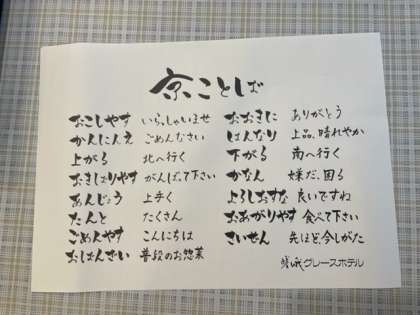 京ことば
おこしやす いらっしゃいませ
かんにんえ ごめんなさい
上がる 北へ行く
おきばりやす がんばって下さい
あんじょう 上手く
たんと たくさん
ごめんやす こんにちは
おばんざい 普段のお惣菜
おおきに ありがとう
はんなり 上品、晴れやか
下がる 南へ行く
かなん 嫌だ、困る
よろしおすな 良いですね
おあがりやす 食べて下さい
さいぜん 先ほど、今しがた
グレースホテル